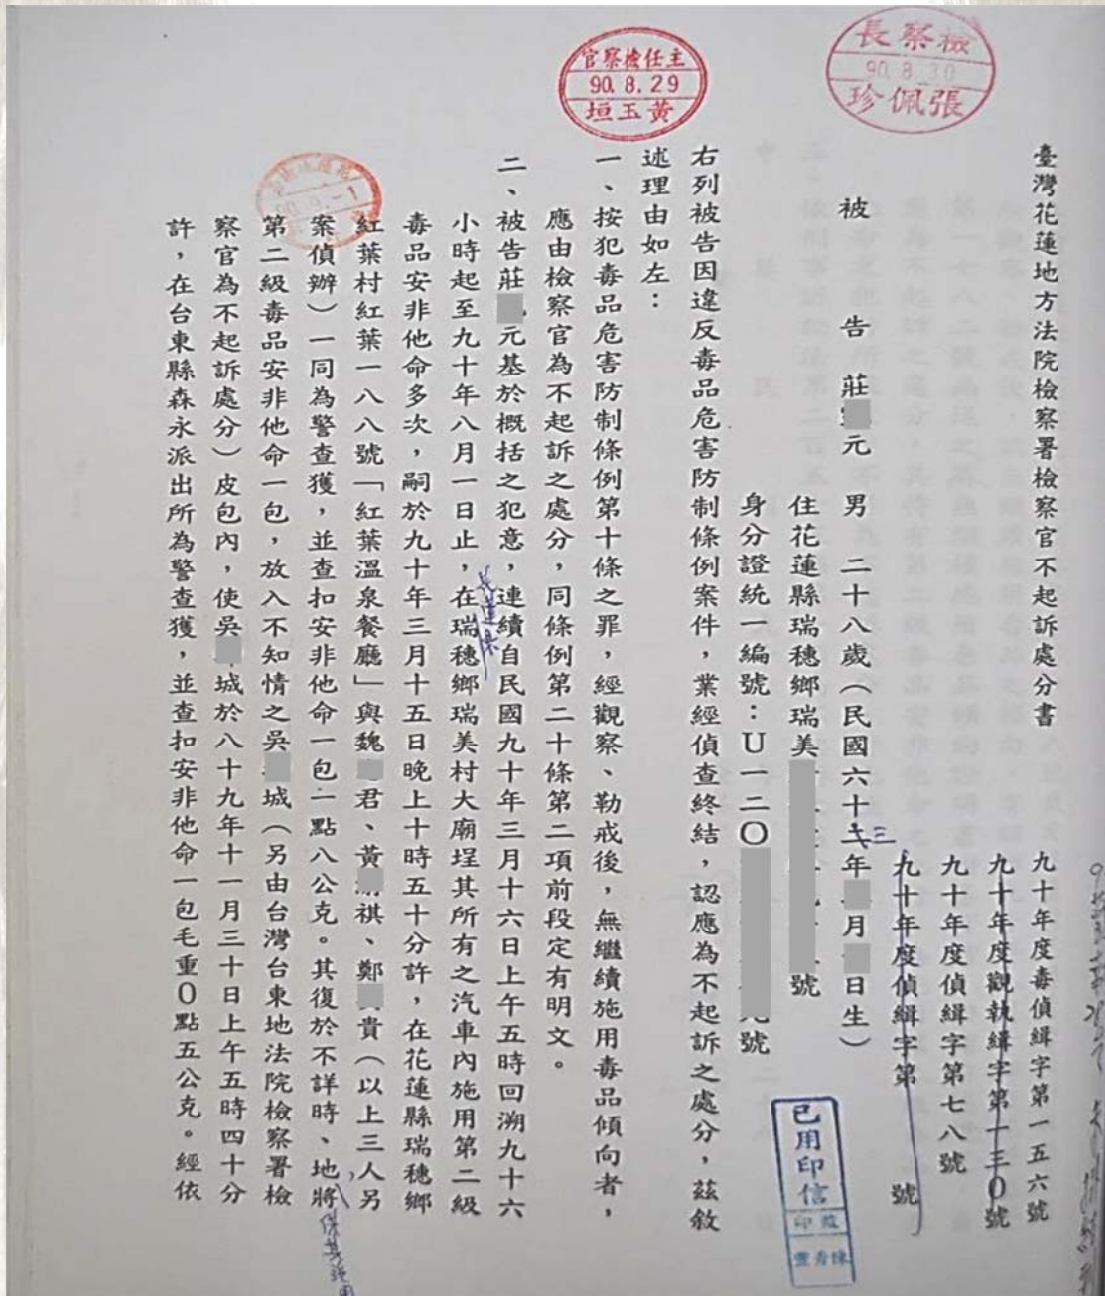 臺灣花蓮地方法院檢察署檢察官不起訴處分書
九十年度毒偵緝字第一五六號
九十年度觀執緝字第一三0號
九十年度偵緝字第七八號
九十年度偵緝字第 號
被 告 莊 元 男 二十八歲(民國六十 三年 月 日生)
住花蓮縣瑞穗鄉瑞美 號
身分證統一編號:U一二〇 號
右列被告因違反毒品危害防制條例案件,業經偵查終結,認應為不起訴之處分,茲敘
述理由如左:
一、按犯毒品危害防制條例第十條之罪,經觀察、勒戒後,無繼續施用毒品傾向者,
應由檢察官為不起訴之處分,同條例第二十條第二項前段定有明文。
二、被告莊 元基於概括之犯意,連續自民國九十年三月十六日上午五時回溯九十六
小時起至九十年八月一日止,在瑞穗鄉瑞美村大廟埕其所有之汽車內施用第二級
毒品安非他命多次,嗣於九十年三月十五日晚上十時五十分許,在花蓮縣瑞穗鄉
紅葉村紅葉一八八號「紅葉溫泉餐廳」與魏 君、黃 祺、鄭 貴(以上三人另
案偵辦)一同為警查獲,並查扣安非他命一包一點八公克。其復於不詳時、地將
第二級毒品安非他命一包,放入不知情之吳 城(另由台灣台東地法院檢察署檢
察官為不起訴處分)皮包內,使吳 城於八十九年十一月三十日上午五時四十分
許,在台東縣森永派出所為警查獲,並查扣安非他命一包毛重0點五公克。經依
檢察長
90.8.30
張佩珍
主任檢察官
90.8.29
黃玉垣
已用印信